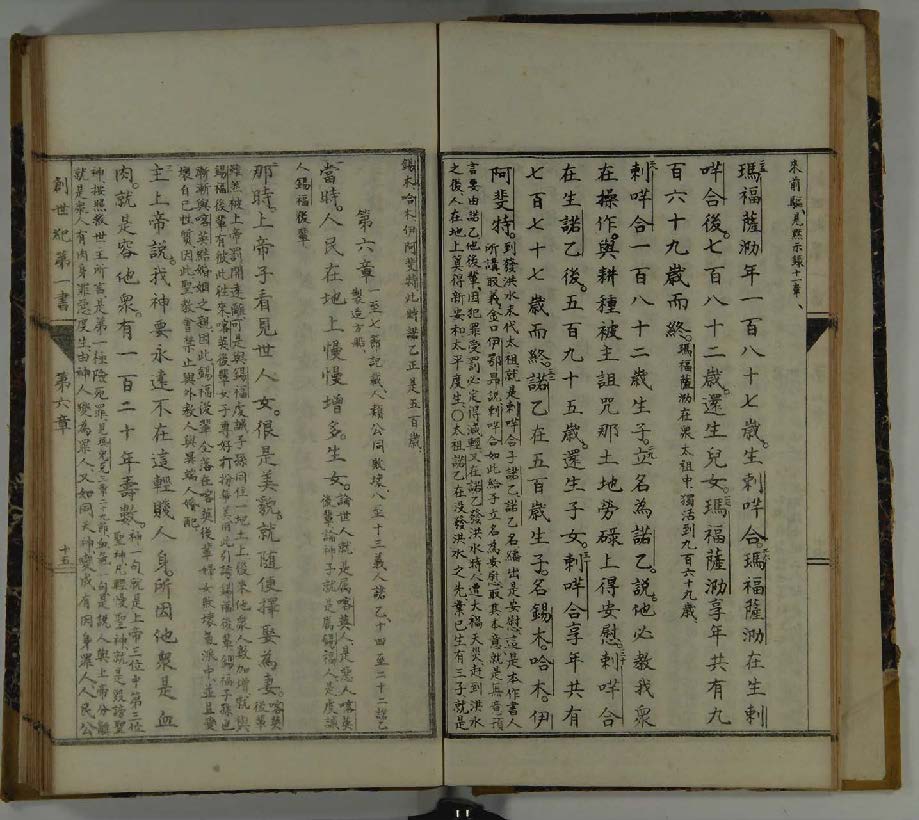 來前驅、見默示錄十一章、
瑪福薩泐年一百八十七歲生剌咩合。瑪福薩泐在生剌
咩合後。七百八十二歲。還生兒女。瑪福薩泐享年共有九
百六十九歲而終。瑪福薩泐在衆太祖中獨活到九百六十九歲
剌咩合一百八十二歲生子。立名為諾乙。說他必教我衆
在操作。與耕種被主詛咒那土地勞碌上得安慰。剌咩合
在生諾乙後。五百九十五歲。還生子女。剌咩合享年共有
七百七十七歲而終。諾乙在五百歲生子。名錫木。哈木。伊
阿斐特。到發洪水末代太祖就是剌咩合子諾乙、諾乙名繙出是安慰、這是本作書人
所講取義、金口伊鄂昂說剌咩合如此給子立名為安慰取其本意就是無意預
言要由諾乙他後輩、因犯罪受罰必定得減輕、又在諾乙發洪水時、人遭大福天災、赶到洪水
之後、人在地上算得新安和太平度生〇太祖諾乙在沒發洪水之先業已生有三子就是
錫木哈木伊阿斐特、此時諾乙正是五百歲、
第六章 一至七節記載人類公同敗壞八至十三義人諾乙十四至二十二諾乙
製造方船
當時。人民在地上慢慢增多。生女。論世人就是属喀英人、是惡人、喀英
後輩、論神子就是属錫福人、是虔誠
人錫福後輩
那時。上帝子看見世人女。很是美貌就隨便擇娶為妻。喀英
後輩
雖然被上帝罰開遠離、可是與錫福虔誠子孫、同住一塊土上、後來他衆人數加增就與
錫福後輩有彼此往來喀英後輩女子專好打扮每美、用此引誘錫福後輩、錫福子孫也
漸漸與喀英結婚姻之親、因此錫福後輩全落在喀英後輩婦女敗壞氣派中、並且變
壞自己性質、因此聖教會禁止與外教人與異端人婚配
主上帝說。我神要永遠不在這輕賤人身。所因他衆是血
肉。就是容他衆。有一百二十年壽數。神一句就是上帝三位中第三位
聖神、凡輕慢聖神就是毀謗聖
神按照救世主所言是第一極險死罪見瑪兒克三章二十九節、血色一句是說人與上帝分離
就是衆人有肉身罪惡度生、由神人變為罪人、又如同天神變成有因身罪人、人民公
創世紀第一書
第六章
十五